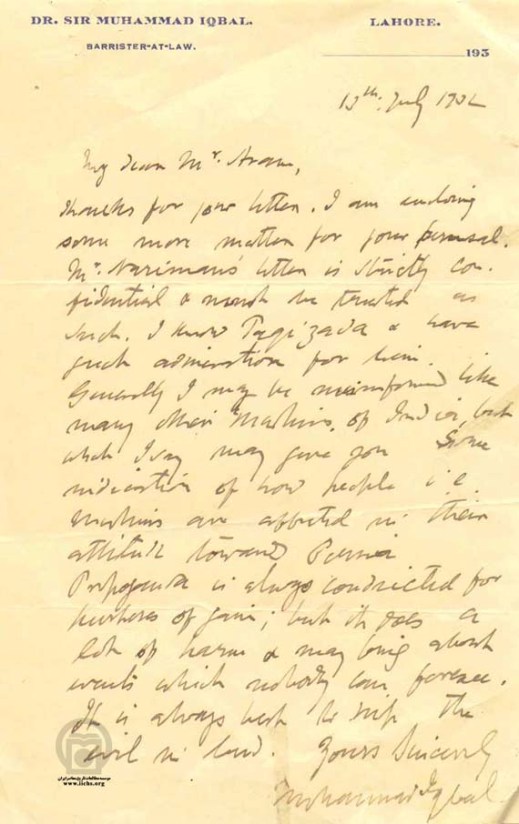 DR. SIR MUHAMMAD IQBAL.
BARRISTER-AT-LAW.
LAHORE.
193
13th July 1932
My dear Mr. Aram,
Thanks for your letter. I am enclosing
some more matter for your perusal.
Mr. Nariman's letter is strictly con-
fidential & must be treated as
such. I know Taqizada & have
great admiration for him.
Generally I may be misinformed like
many other Muslims of India, but
what I say may give you some
indication of how people i.e.
Muslims are affected in their
attitude toward Persia
Propaganda is always conducted for
purposes of gain; but it does a
lot of harm & may bring about
events which nobody can foresee.
It is always best to nip the
evil in bud. Yours Sincerely
Mohammad Iqbal
www.iichs.org